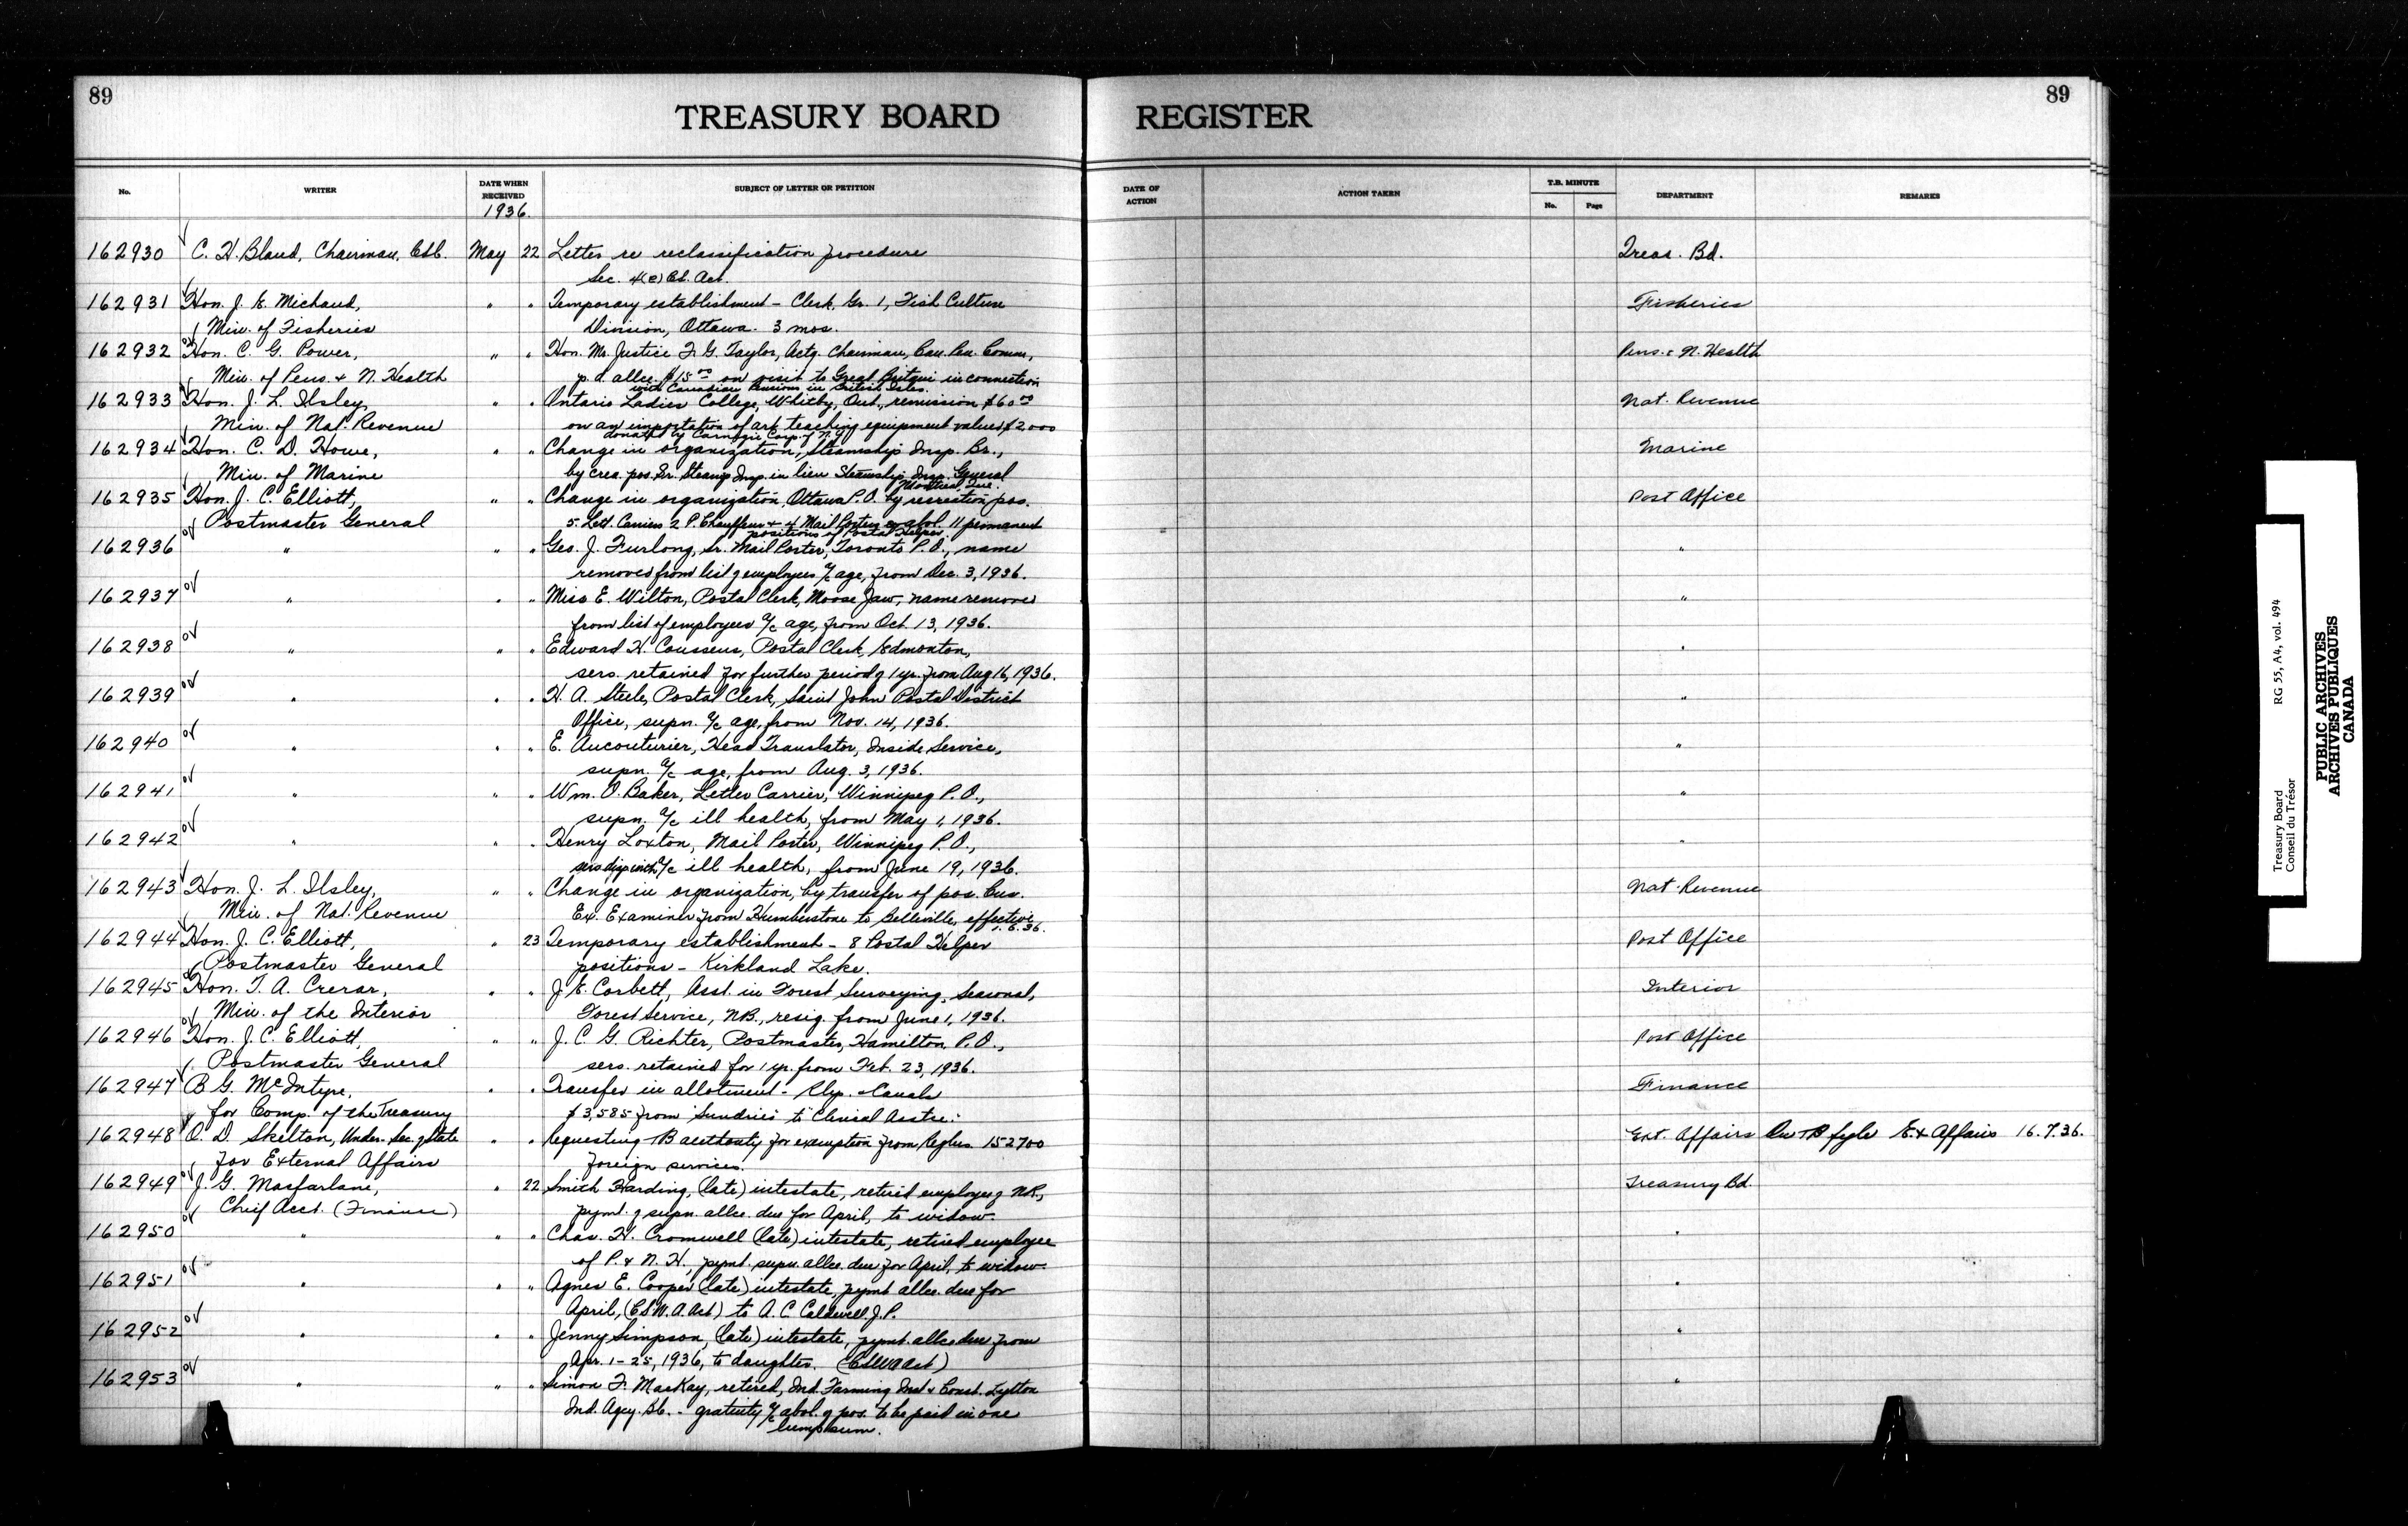 89
89
TREASURY BOARD REGISTER
No. WRITER DATE WHEN RECEIVED SUBJECT OF LETTER OR PETITION DATE OF ACTION ACTION TAKEN T.B. MINUTE No. Page DEPARTMENT REMARKS
1936.
162930 C. H. Bland, Chairman, May 22 Letter re reclassification procedure Treas. Bd.
Sec. Act.
162931 Hon. J. E. Michaud, " " Temporary establishment - Clerk, Gr. 1, Fish Culture Fisheries
Min. of Fisheries Division, Ottawa. 3 mos.
162932 Hon. C. G. Power, " " Hon. Mr. Justice F. G. Taylor, Actg. Chairman, Can. Pen. Comm., Pens. & N. Health
Min. of Pens. & N. Health p. d. allce. $15.00 on visit to Great Britain in connection
with Canadian Pensions in British Isles.
162933 Hon. J. L. Ilsley, " " Ontario Ladies College, Whitby, Ont., remission $60.00 Nat. Revenue
Min. of Nat. Revenue on an importation of art teaching equipment valued $2000
donated by Carnegie Corp. of N.Y.
162934 Hon. C. D. Howe, " " Change in organization, Steamship Insp. Br., Marine
Min. of Marine by crea. pos. Sr. Steamp Insp. in lieu Steamship Insp. General
Montreal, Que.
162935 Hon. J. C. Elliott, " " Change in organization, Ottawa P.O. by recreation pos. Post Office
Postmaster General 5 Lett. Carriers 2 P. Chauffeurs & 4 Mail Porters & abol. 11 permanent
positions of Postal Helper.
162936 " " " Geo. J. Furlong, Sr. Mail Porter, Toronto P.O., name "
removed from list of employees a/c age, from Dec. 3, 1936.
162937 " " " Miss E. Wilton, Postal Clerk, Moose Jaw, name removed "
from list of employees a/c age, from Oct. 13, 1936.
162938 " " " Edward H. Coussens, Postal Clerk, Edmonton, "
sers. retained for further period of 1 yr. from Aug 16, 1936.
162939 " " " H. A. Steele, Postal Clerk, Saint John Postal District "
Office, supn. a/c age, from Nov. 14, 1936.
162940 " " " E. Aucouturier, Head Translator, Inside Service, "
supn. a/c age, from Aug. 3, 1936.
162941 " " " Wm. O. Baker, Letter Carrier, Winnipeg P.O., "
supn. a/c ill health, from May 1, 1936.
162942 " " " Henry Loxton, Mail Porter, Winnipeg P.O., "
sers disp with a/c ill health, from June 19, 1936.
162943 Hon. J. L. Ilsley, " " Change in organization, by transfer of pos. Cus. Nat. Revenue
Min. of Nat. Revenue Ex. Examiner from Humberstone to Belleville, effective
1.6.36.
162944 Hon. J. C. Elliott, " 23 Temporary establishment - 8 Postal Helper Post Office
Postmaster General positions - Kirkland Lake.
162945 Hon. T. A. Crerar, " " J. E. Corbett, Asst. in Forest Surveying, Seasonal, Interior
Min. of the Interior Forest Service, NB., resig. from June 1, 1936.
162946 Hon. J. C. Elliott, " " J. C. G. Richter, Postmaster, Hamilton P.O., Post Office
Postmaster General sers. retained for 1 yr. from Feb. 23, 1936.
162947 B. G. McIntyre, " " Transfer in allotment - Rlys. & Canals Finance
for Comp. of the Treasury $3,585 from "Sundries" to "Clerical Asstce."
162948 O. D. Skelton, Under-Sec. of State " " Requesting TB authority for exemption from Reglns. 152700 Ext. Affairs On TB fyle Ex Affairs 16.7.36.
for External Affairs foreign services.
162949 J. G. Macfarlane, " 22 Smith Harding, (late) intestate, retired employee of NR, Treasury Bd.
Chief Acct. (Finance) pymt. of supn. allce. due for April, to widow.
162950 " " " Chas. H. Cromwell (late) intestate, retired employee "
of P. & N. H., pymt. supn. allce. due for April, to widow.
162951 " " " Agnes E. Cooper (late) intestate, pymt. allce. due for "
April, (C.S.W.A. Act) to A. C. Caldwell J.P.
162952 " " " Jenny Simpson, (late) intestate, pymt. allce due from "
Apr. 1-25, 1936, to daughter. (CSWA Act)
162953 " " " Simon F. MacKay, retired, Ind. Farming Inst. & Const. Lytton "
Ind. Agcy. B.C. - gratuity a/c abol. of pos. to be paid in one
lump sum.
Treasury Board RG 55, A4, vol. 494
Conseil du Trésor
PUBLIC ARCHIVES
ARCHIVES PUBLIQUES
CANADA